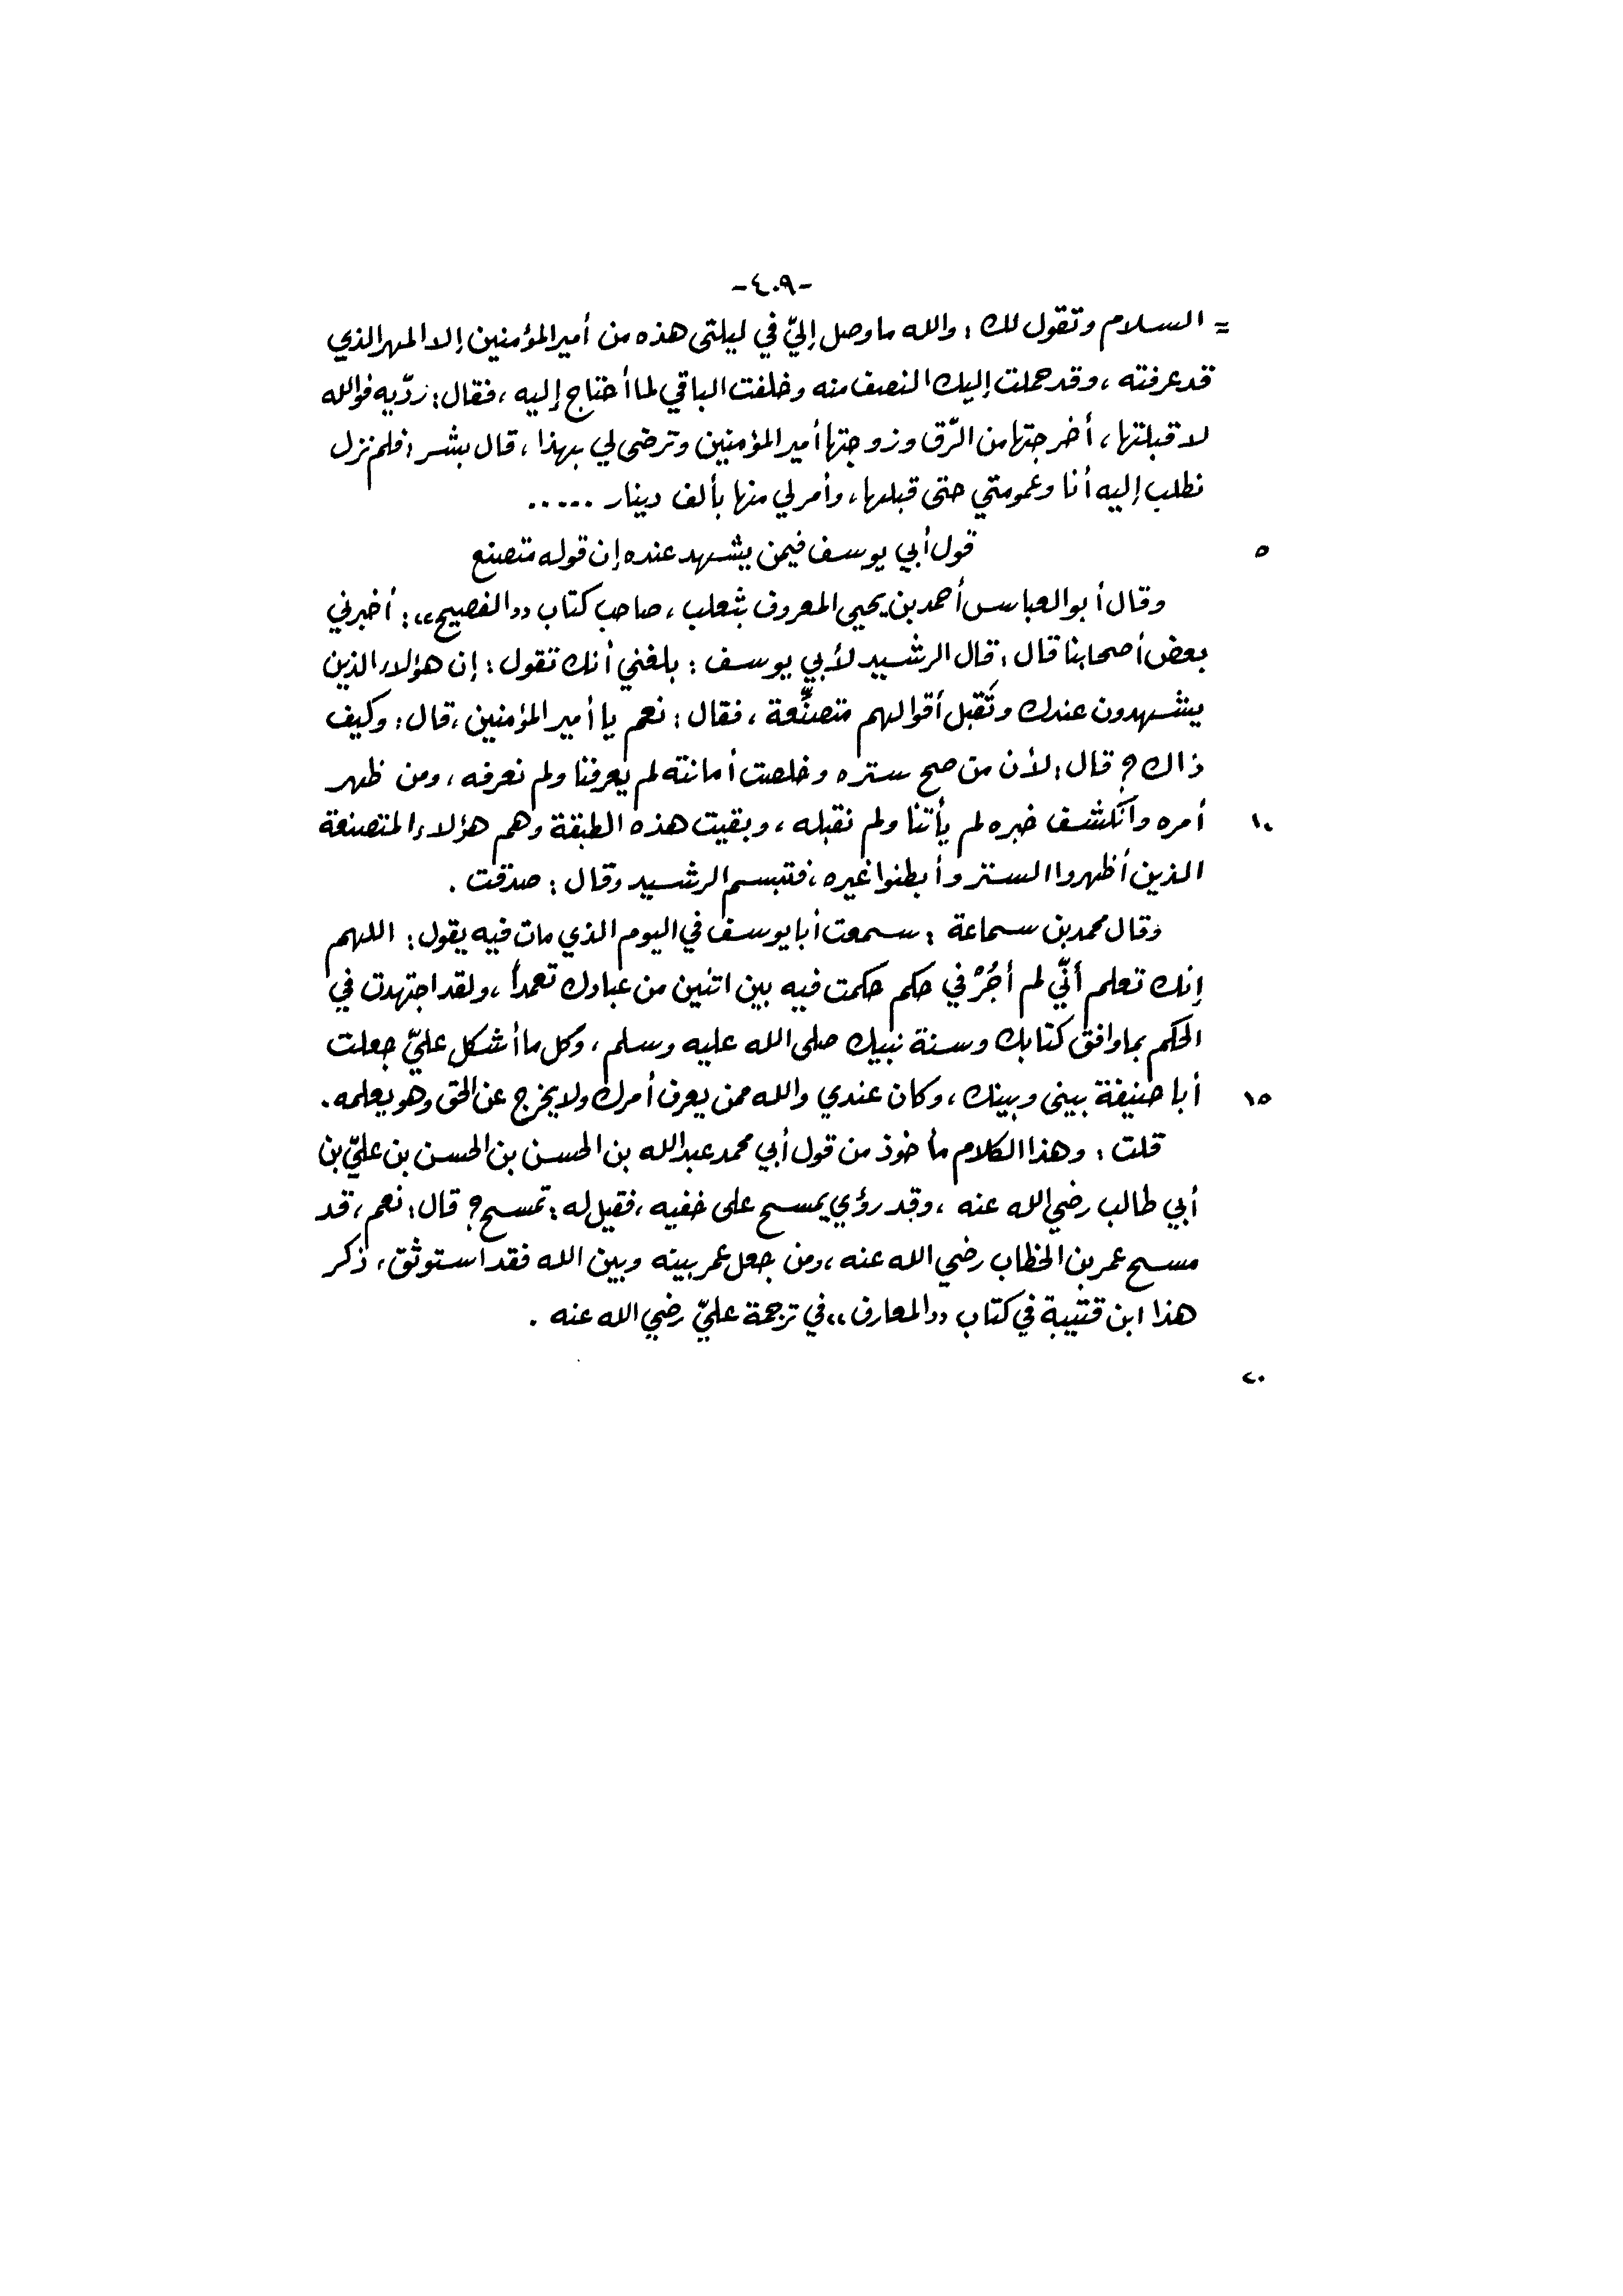 -٤٠٩-
= السلام وتقول لك: والله ما وصل إليّ في ليلتي هذه من أمير المؤمنين إلا المهر الذي
قد عرفته، وقد حملت إليك النصف منه وخلفت الباقي لما أحتاج إليه، فقال: ردّيه فوالله
لا قبلتها، أخرجتها من الرّق وزوجتها أمير المؤمنين وترضى لي بهذا، قال بشر: فلم نزل
نطلب إليه أنا وعمومتي حتى قبلها، وأمر لي منها بألف دينار .....
٥ قول أبي يوسف فيمن يشهد عنده إن قوله متصنع
وقال أبو العباس أحمد بن يحيى المعروف بثعلب، صاحب كتاب ((الفصيح)): أخبرني
بعض أصحابنا قال: قال الرشيد لأبي يوسف: بلغني أنك تقول: إن هؤلاء الذين
يشهدون عندك وتَقبل أقوالهم متصنِّعة، فقال: نعم يا أمير المؤمنين، قال: وكيف
ذاك؟ قال: لأن من صح ستره وخلصت أمانته لم يعرفنا ولم نعرفه، ومن ظهر
١٠ أمره وآنكشف خبره لم يأتنا ولم نقبله، وبقيت هذه الطبقة وهم هؤلاء المتصنعة
الذين أظهروا الستر وأبطنوا غيره، فتبسم الرشيد وقال: صدقت.
وقال محمد بن سماعة: سمعت أبا يوسف في اليوم الذي مات فيه يقول: اللهم
إنك تعلم أنّي لم أجُرْ في حكم حكمت فيه بين اثنين من عبادك تعمداً، ولقد اجتهدت في
الحكم بما وافق كتابك وسنة نبيك صلى الله عليه وسلم، وكل ما أشكل عليّ جعلت
١٥ أبا حنيفة بيني وبينك، وكان عندي والله ممن يعرف أمرك ولا يخرج عن الحق وهو يعلمه.
قلت: وهذا الكلام مأخوذ من قول أبي محمد عبدالله بن الحسن بن الحسن بن عليّ بن
أبي طالب رضي الله عنه، وقد رؤي يمسح على خفيه، فقيل له: تمسح؟ قال: نعم، قد
مسح عمر بن الخطاب رضي الله عنه، ومن جعل عمر بينه وبين الله فقد استوثق، ذكر
هذا ابن قتيبة في كتاب ((المعارف)) في ترجمة عليّ رضي الله عنه.
٢٠